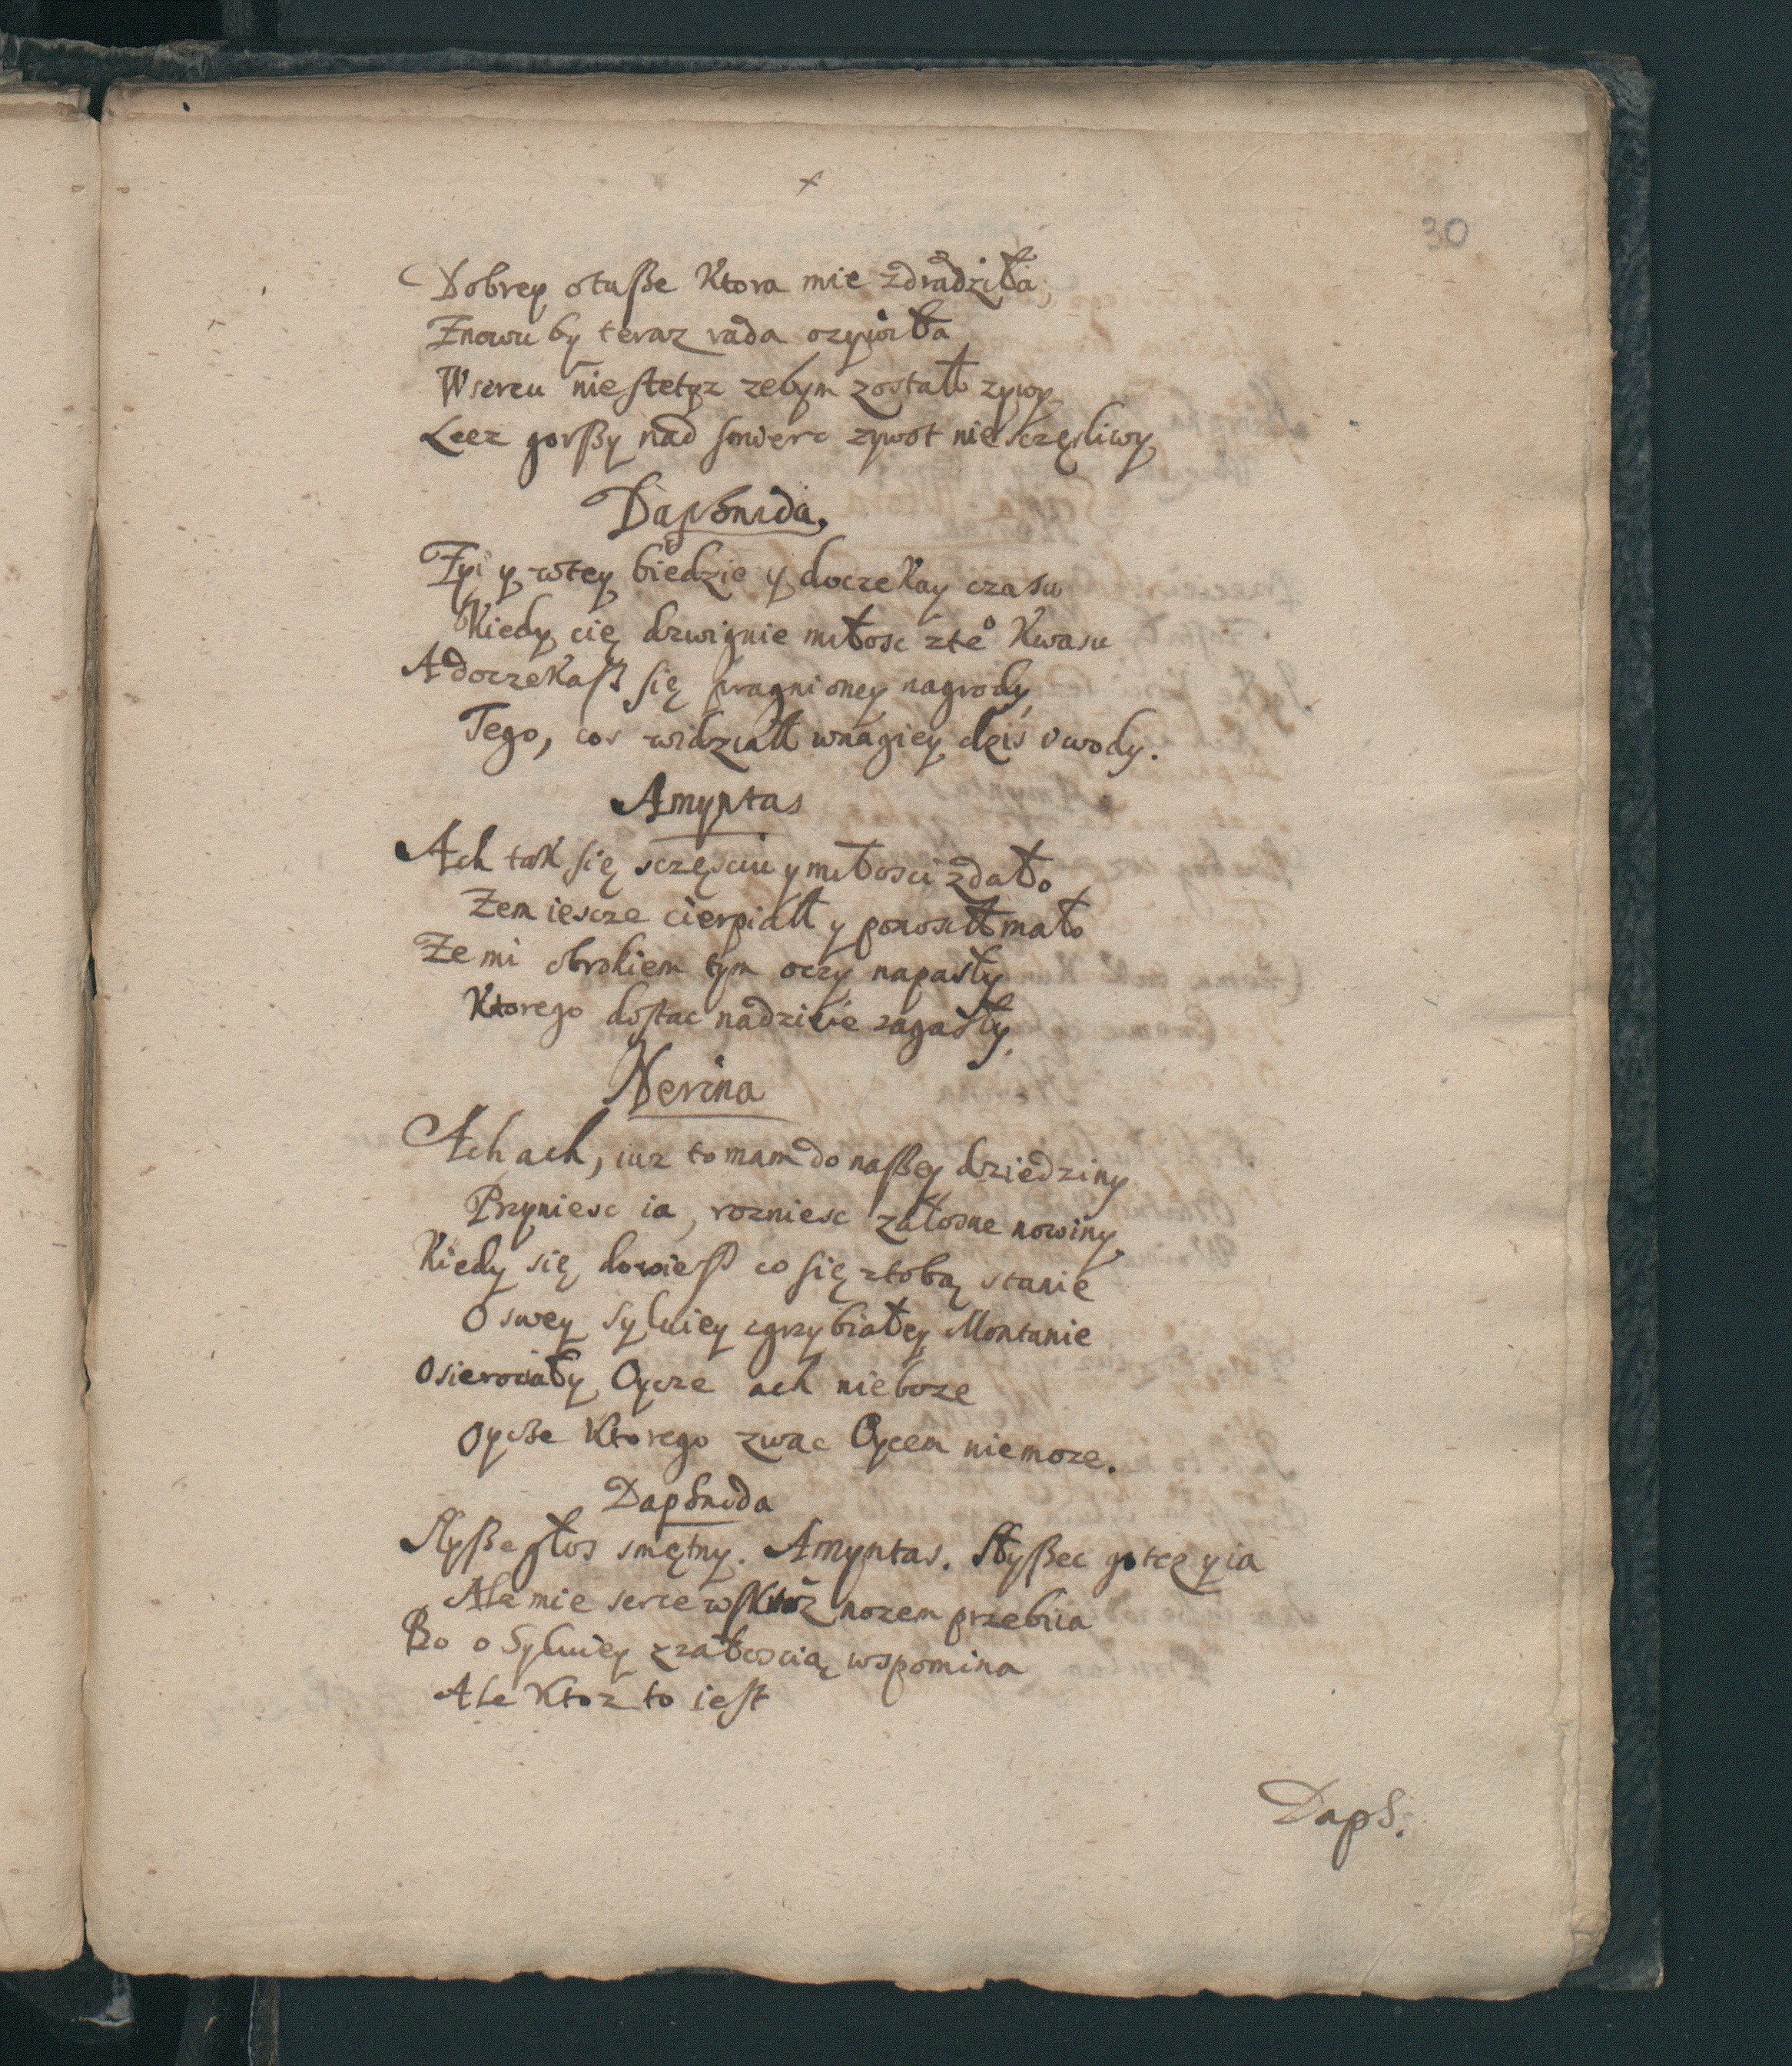 x
30
Dobrey otuße Ktora mie zdradziła,
Znowu by teraz rada ozywiła
W sercu niestetyz zebym został zywy
Lecz gorßy nad smierc zywot niesczęsliwy
Daphnida.
Zyi y wtey biedzie y doczekay czasu
Kiedy cię dzwignie miłosc zte° Kwasu
A doczekaß się pragnioney nagrody
Tego, cos widział wnagiey dziś v wody.
Amyntas
Ach tak się sczęsciu y miłosci zdało
Zem iescze cierpiał y ponosił mało
Ze mi obrokiem tym oczy napasły
Ktorego dostac nadzieie zagasły.
Nerina
Ach ach, iuz to mam do naßey dziedziny
Przyniesc ia, rozniesc załosne nowiny
Kiedy się dowieß co się ztobą stanie
O swey Sylwiey zgrzybiałey Montanie
Osierociały Oycze ach nieboze
Oycße Ktorego zwac Oycem niemoze.
Daphnida
Słyße głos smętny. Amyntas. Słyßec go tez y ia
Ale mie serce wskroz nozem przebiia
Bo o Sylwiey zzałoscią wspomina
Ale Ktoz to iest
Daph.